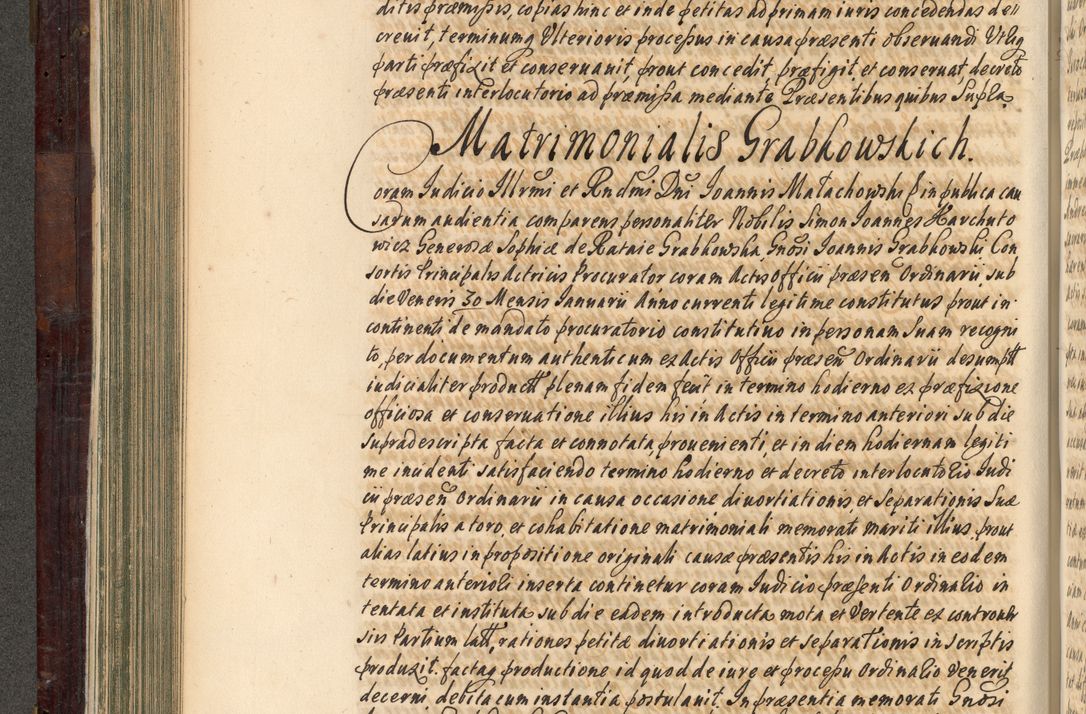 ditis præmissis, copias hinc et inde petitas ad primam iuris concedendas de
creuit, terminumq Ulterioris processus in causa præsenti obseruandi Utrig
parti præfixit et conseruauit, prout concedit, præfigit, et conseruat, decreto
præsenti interlocutorio ad præmissa mediante Præsentibus quibus Supla
Matrimonialis Grabkowskich.
Coram Iudicio Illrmi et Rndmi Dni Ioannis Małachowski in publica cau
sarum audientia, comparens personaliter Nobilis Simon Ioannes Harchuto
wicz Generosæ Sophiæ de Rataie Grabkowska, Gnosi Ioannis Grabkowski Con
sortis Principalis Actricis Procurator coram Actis Officii præsen Ordinarii, sub
die Veneris 30 Mensis Ianuarii Anno currenti legitime constitutus prout in
continenti de mandato procuratorio constitutiuo in personam Suam recogni
to, per documentum authenticum ex Actis Officii præsen Ordinarii desumptt
iudicialiter productt plenam fidem fecit in termino hodierno ex præfixione
officiosa et conseruatione illius his in Actis in termino anteriori sub die
supradescripta facta et connotata, prouenienti, et in diem hodiernam legiti
me incidenti satisfaciendo termino hodierno et decreto interlocutorio Iudi
cii præsen Ordinarii in causa occasione diuortiationis, et Separationis Suæ
Principalis a toro, et cohabitatione matrimoniali memorati mariti illius, prout
alias latius in propositione originali causæ præsentis his in Actis in eodem
termino anteriori inserta continetur coram Iudicio præsenti Ordinario in
tentata et instituta sub die eadem introducta mota et Vertente ex controuer
siis Partium latt, rationes petitæ diuortiationis et separationis in scriptis
produxit. factaq productione id quod de iure et processu Ordinario Venerit
decerni debita cum instantia postulauit. In præsentia memorati Gnosi